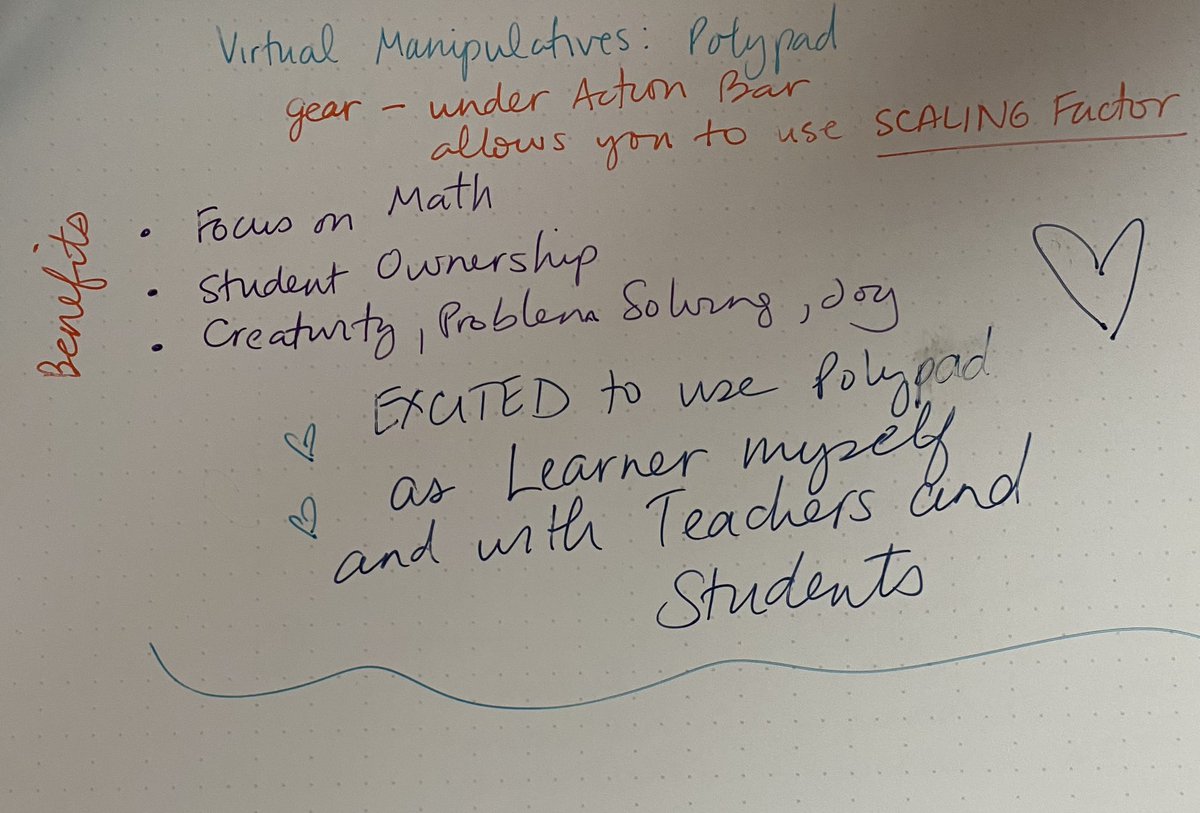 Virtual Manipulatives: Polypad
gear - under Action Bar
allows you to use SCALING Factor
Benefits
• Focus on Math
• Student Ownership
• Creativity, Problem Solving, Joy
EXCITED to use Polypad
as Learner myself
and with Teachers and
Students